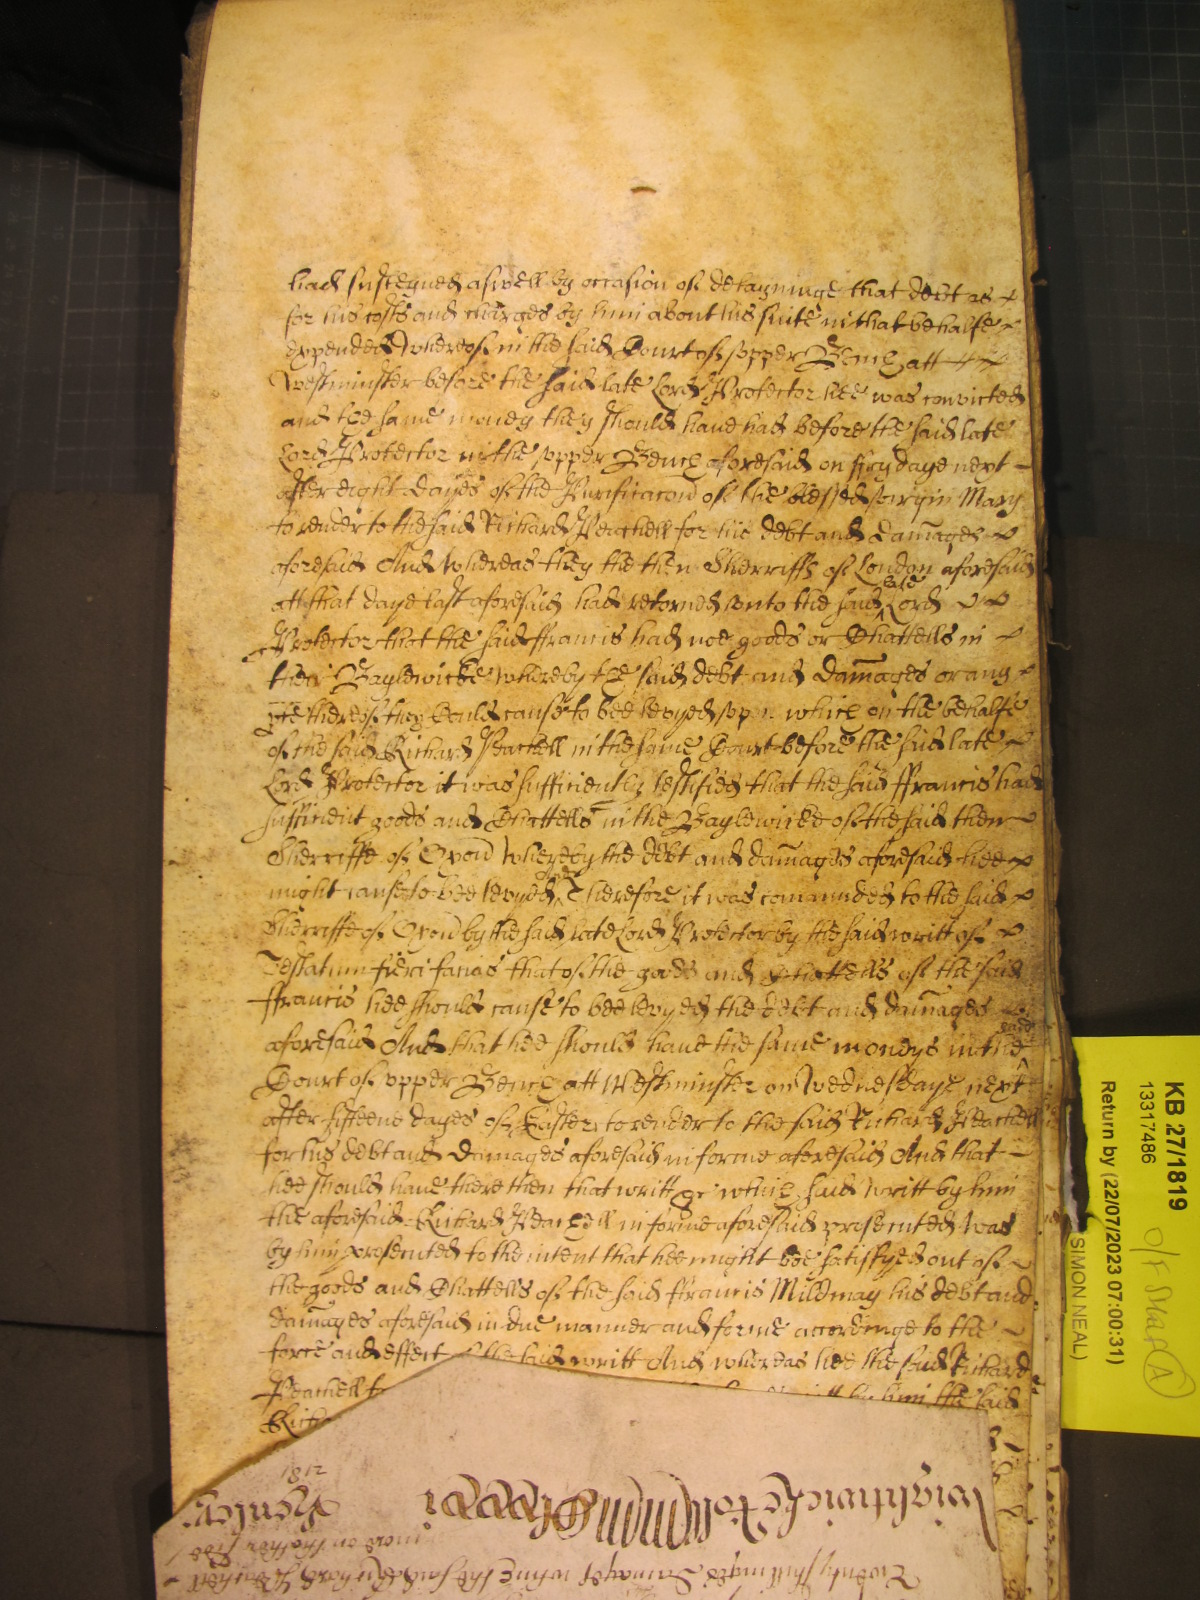 had susteyned aswell by occasion of detayninge that debt as
for his costs and charges by him about his suite in that behalfe
expended whereof in the said Court of upper Bench att
Westminster before the said late Lord Protector hee was convicted
and the same money they should have had before the said late
Lord Protector in the upper Bench aforesaid on fryday next
after eight dayes of the Purificacon of the blessed virgin Mary
to render to the said Richard Peachell for his debt and damages
aforesaid And whereas they the then Sherriffs of London aforesaid
att that daye last aforesaid had retorned unto the said late Lord
Protector that the said ffrancis had noe goods or Chattells in
their Baylewicke whereby the said debt and damages or any
pte thereof they Could cause to bee levyed upon which on the behalfe
of the said Richard Peachell in the same Court before the said late
Lord Protector it was sufficiently testified that the said ffrancis had
sufficient goods and Chattells in the Baylewicke of the said then
Sherriffe of Oxon whereby the debt and damages aforesaid hee
might cause to bee levyed Therefore it was comannded to the said
Sherriffe of Oxon by the said late Lord Protector by the said writt of
Testatum fieri facias that of the goods and Chattells of the said
ffrancis hee should cause to bee levyed the debt and damages
aforesaid And that hee should have the same moneys in the said
Court of upper Bench att Westminster on Wednesdaye next
after fifteene dayes of Easter to render to the said Richard Peachell
for his debt and damages aforesaid in forme aforesaid And that
hee should have there then that writt &c which said writt by him
the aforesaid Richard Peachell in forme aforesaid prosecuted was
by him prosecuted to the intent that hee might bee satisfyed out of
the goods and Chattells of the said ffrancis Mildmay his debt and
damages aforesaid in due manner and forme accordinge to the
force and effect of the said writt And whereas hee the said Richard
Peachell by him the said
Rich
KB 27/1819
13317486
Return by (22/07/2023 07:00:31)
SIMON NEAL)
O/F Staff A
Wightwicke
1812
Henley
more on thother side